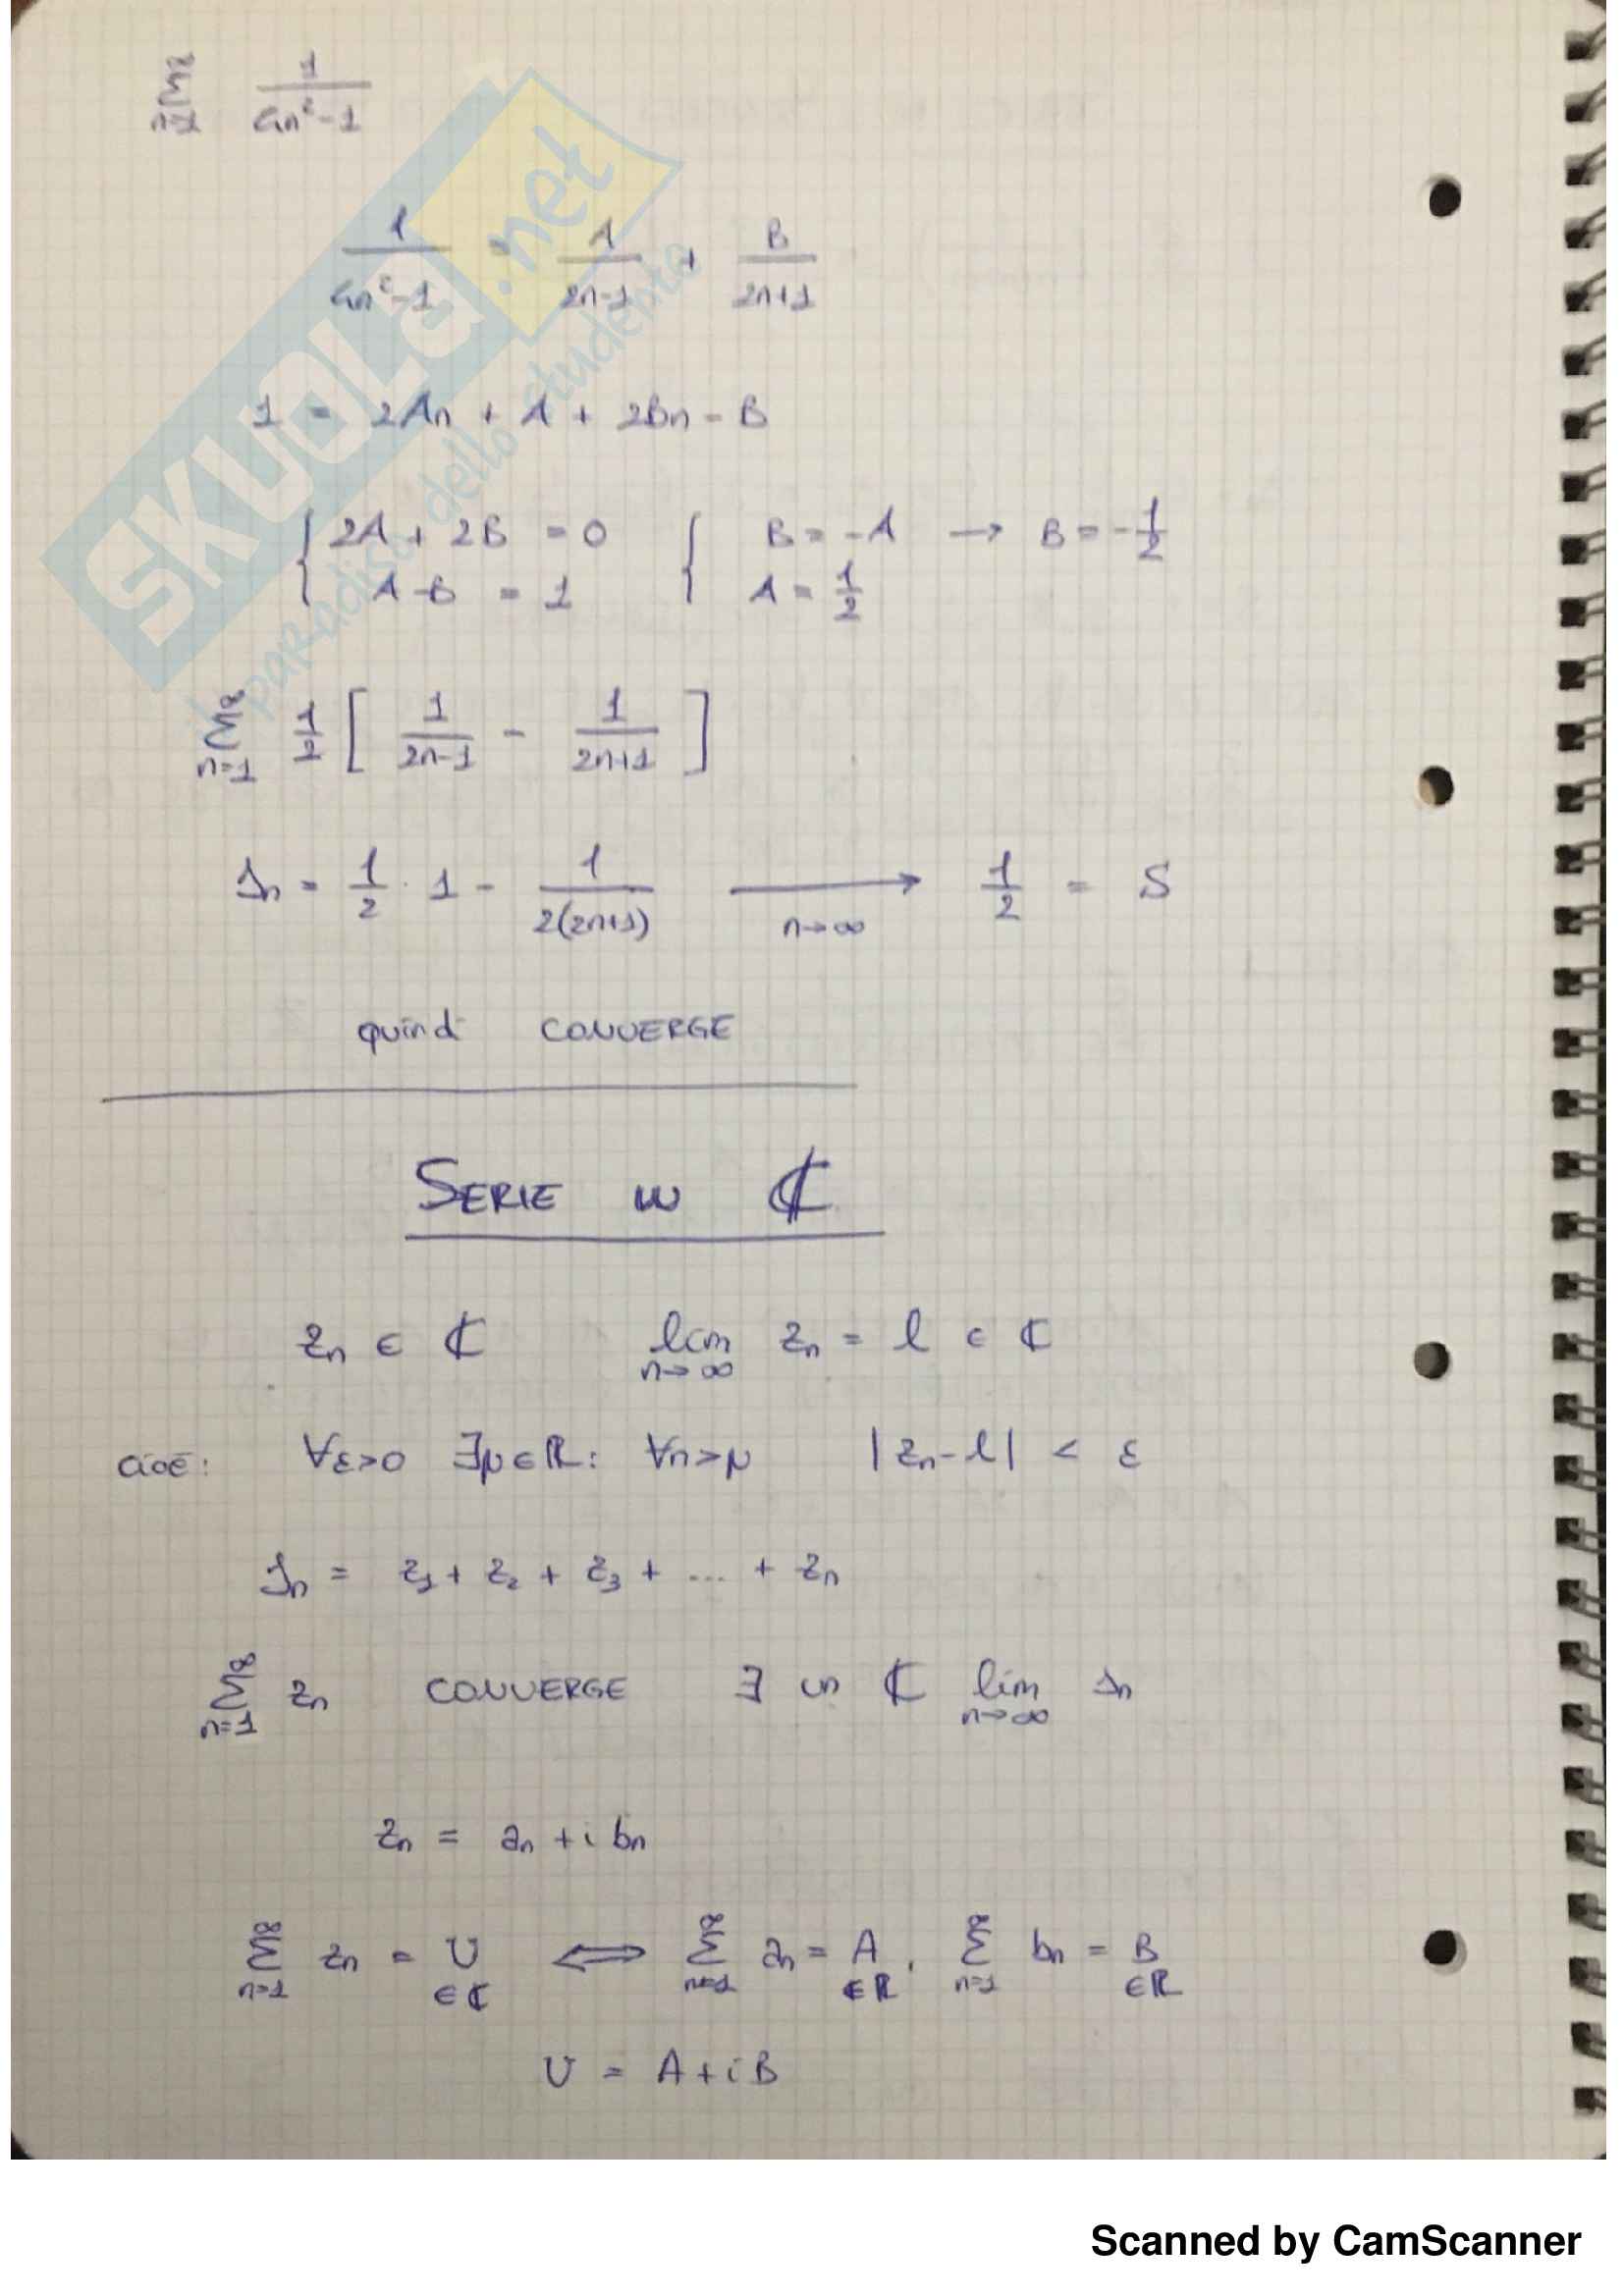 ∑_{n=1}^{∞} 1/(4n²-1)
1/(4n²-1) = A/(2n-1) + B/(2n+1)
1 = 2An + A + 2Bn - B
{ 2A + 2B = 0 { B = -A → B = -1/2
A - B = 1 A = 1/2
∑_{n=1}^{∞} 1/2 [ 1/(2n-1) - 1/(2n+1) ]
s_n = 1/2 · 1 - 1/(2(2n+1)) ⟶_{n→∞} 1/2 = S
quindi CONVERGE
SERIE IN ℂ
z_n ∈ ℂ lim_{n→∞} z_n = l ∈ ℂ
cioè: ∀ε>0 ∃μ∈ℝ: ∀n>μ |z_n - l| < ε
s_n = z_1 + z_2 + z_3 + ... + z_n
∑_{n=1}^{∞} z_n CONVERGE ∃ in ℂ lim_{n→∞} s_n
z_n = a_n + i b_n
∑_{n=1}^{∞} z_n = U ∈ℂ ⟺ ∑_{n=1}^{∞} a_n = A ∈ℝ, ∑_{n=1}^{∞} b_n = B ∈ℝ
U = A + iB
SKUOLA.net
paradiso dello studente
Scanned by CamScanner